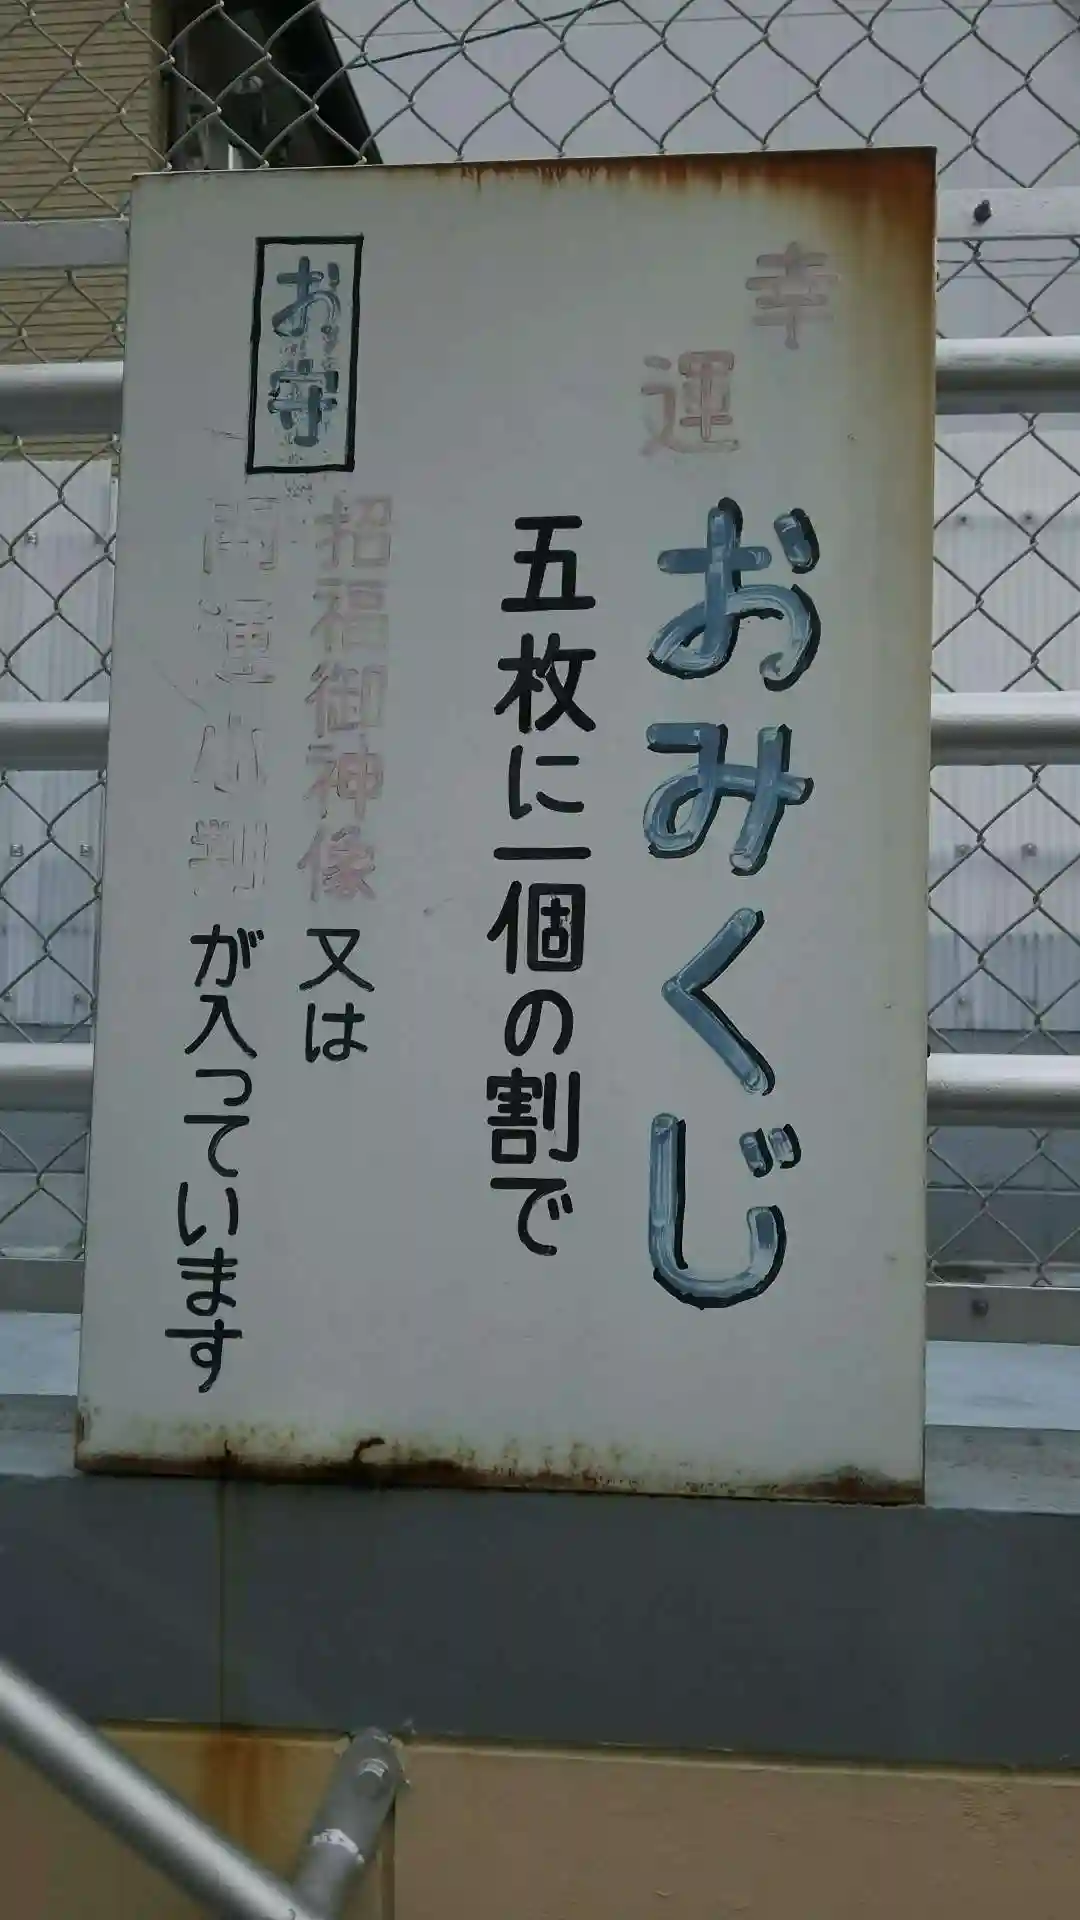 幸運
おみくじ
五枚に一個の割で
お守
招福御神像又は
開運小判が入っています